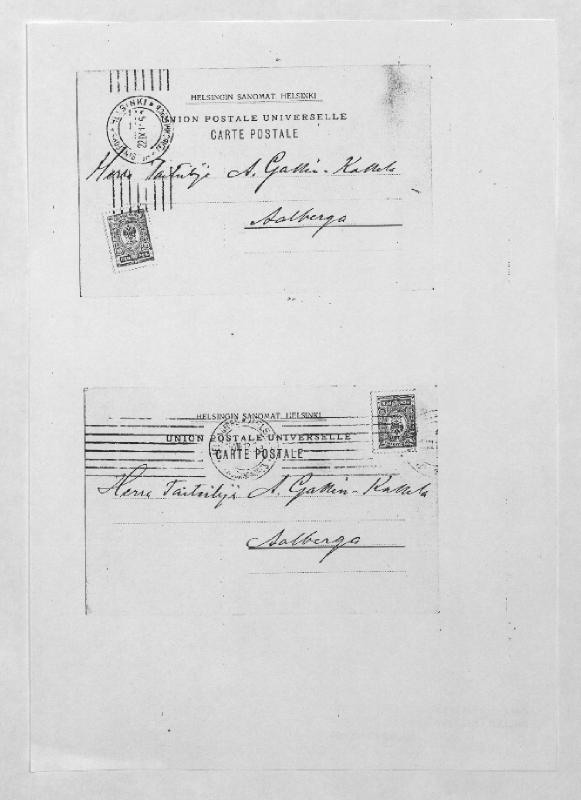 HELSINGIN SANOMAT. HELSINKI
UNION POSTALE UNIVERSELLE
CARTE POSTALE
HELSINKI
Herra Taiteilija A. Gallén-Kallela
Aalberga
HELSINGIN SANOMAT. HELSINKI
UNION POSTALE UNIVERSELLE
CARTE POSTALE
Herra Taiteilija A. Gallén-Kallela
Aalberga